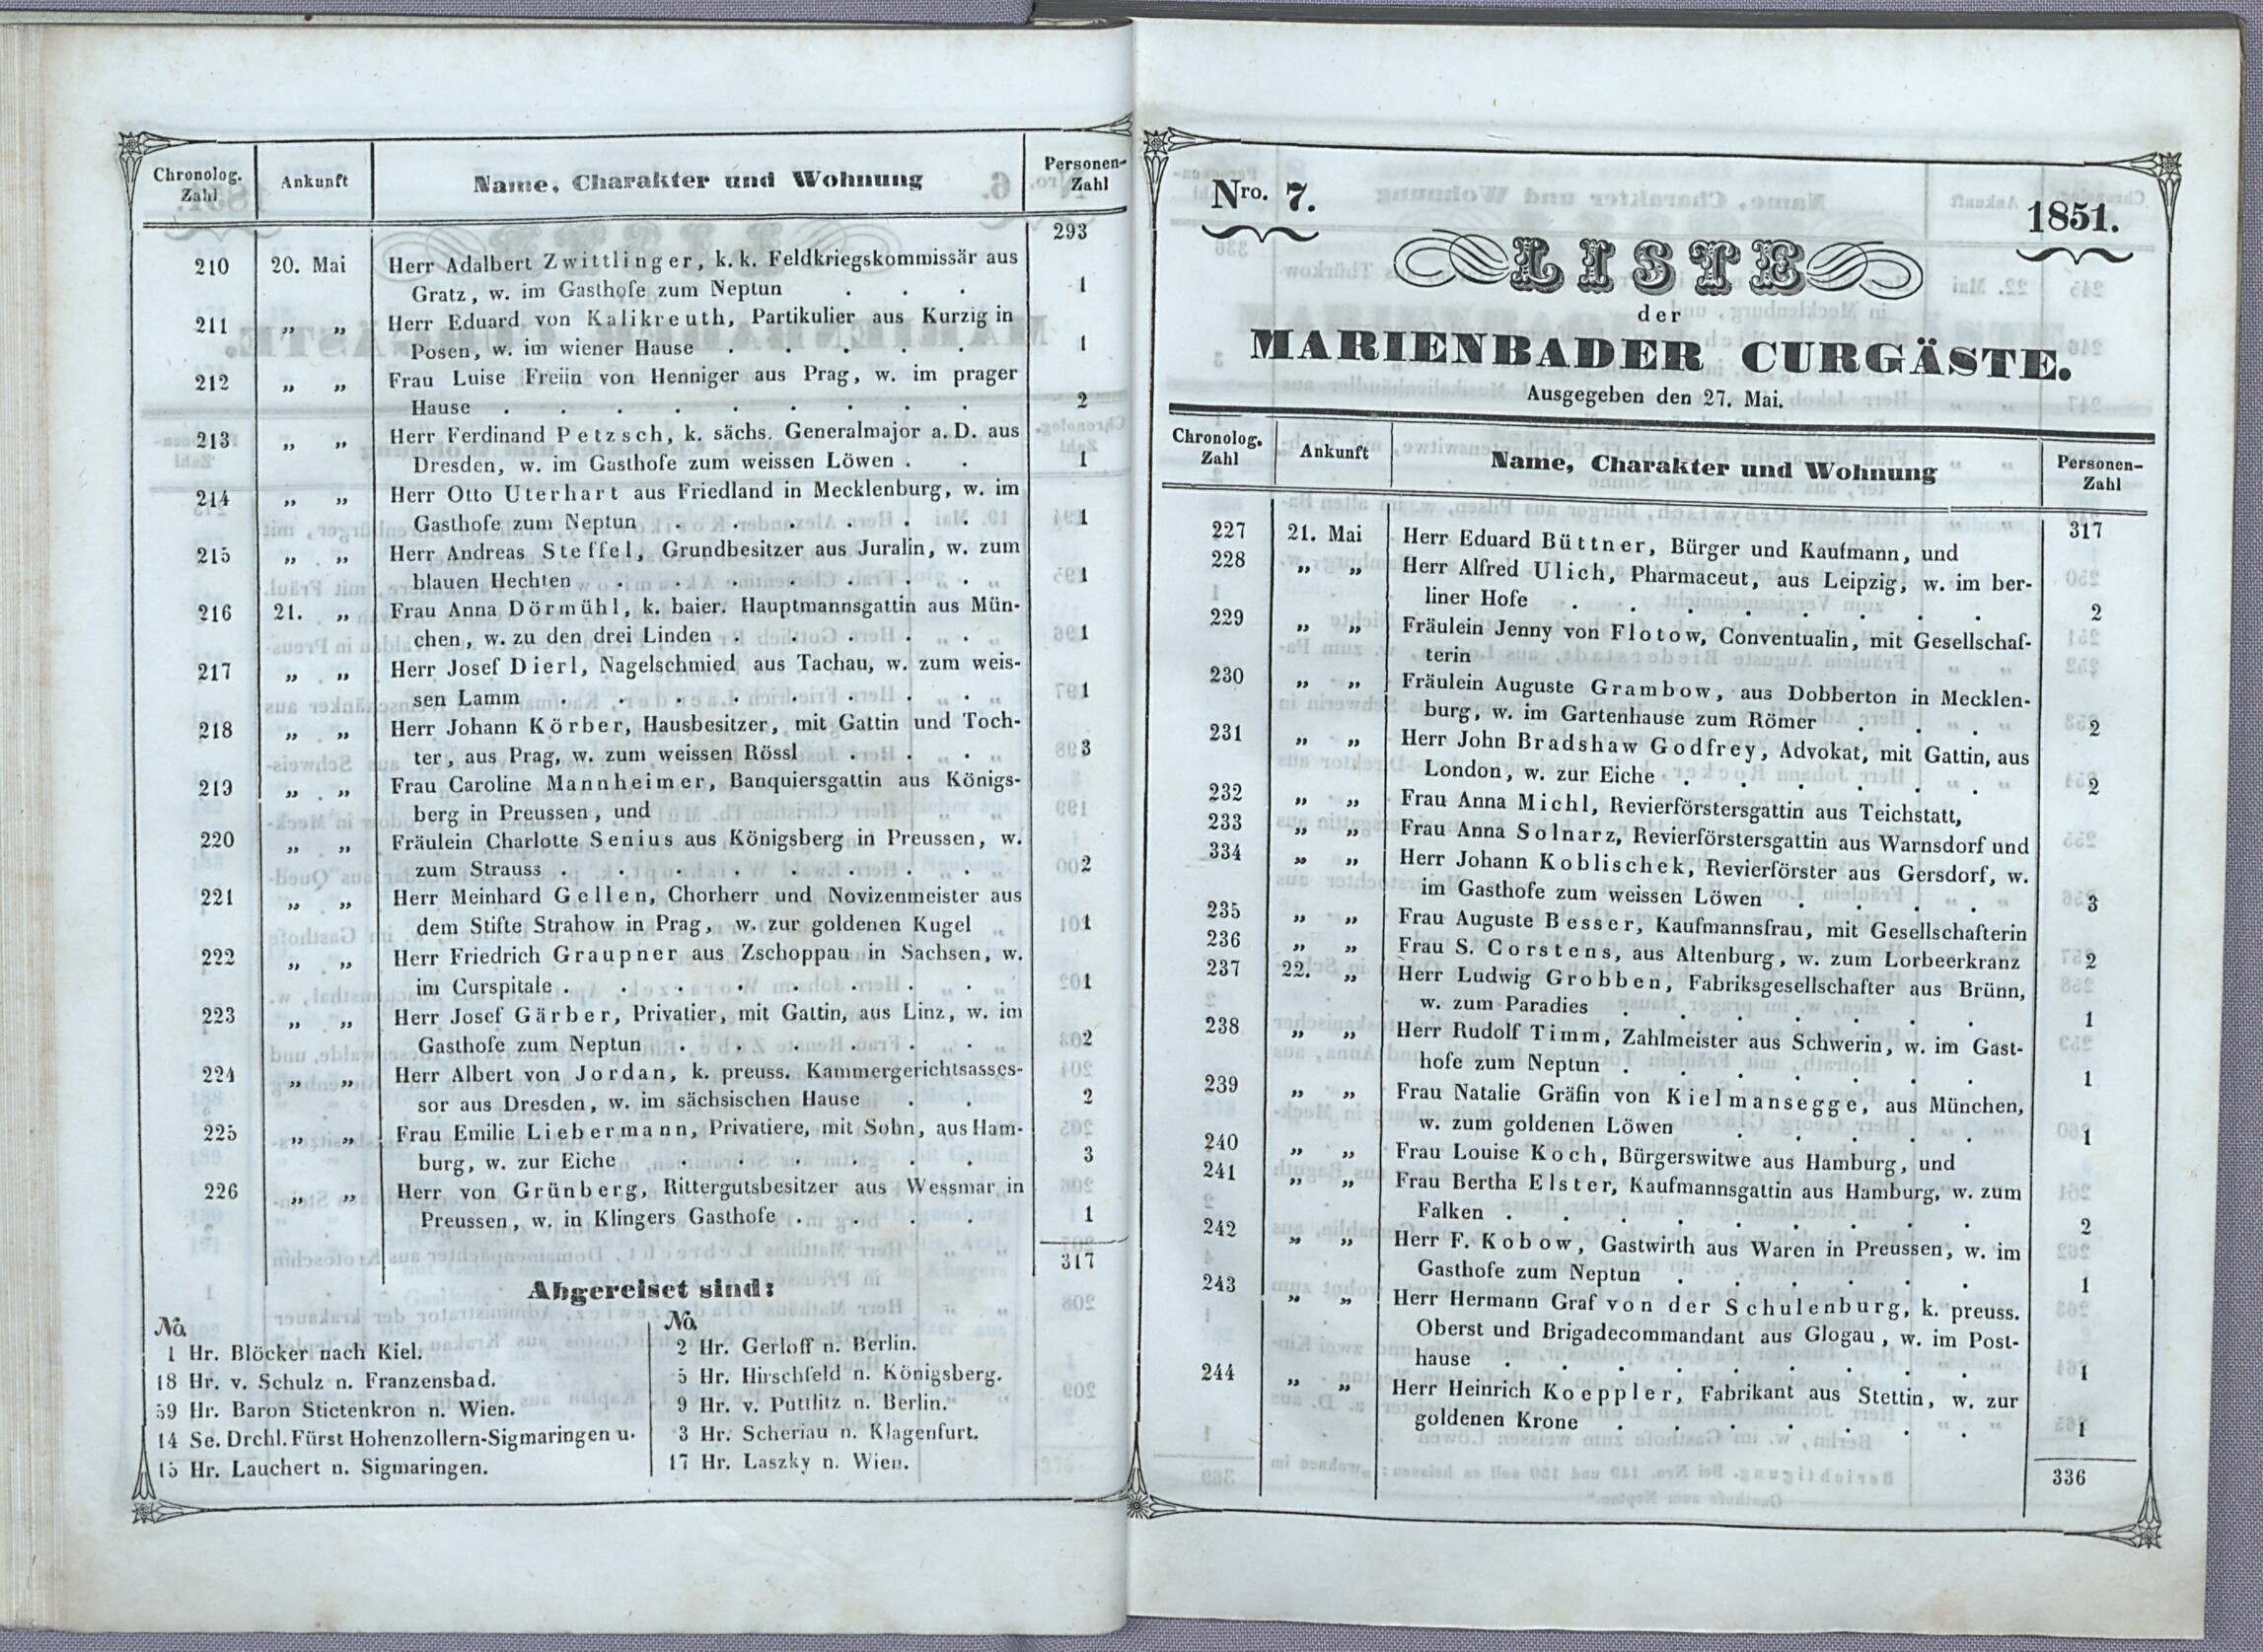 Chronolog. Zahl
Ankunft
Name, Charakter und Wohnung
Personen-Zahl
293
210 20. Mai Herr Adalbert Zwittlinger, k. k. Feldkriegskommissär aus
Gratz, w. im Gasthofe zum Neptun . . . 1
211 „ „ Herr Eduard von Kalikreuth, Partikulier aus Kurzig in
Posen, w. im wiener Hause . . . . . 1
212 „ „ Frau Luise Freiin von Henniger aus Prag, w. im prager
Hause . . . . . . . . . 2
213 „ „ Herr Ferdinand Petzsch, k. sächs. Generalmajor a. D. aus
Dresden, w. im Gasthofe zum weissen Löwen . . 1
214 „ „ Herr Otto Uterhart aus Friedland in Mecklenburg, w. im
Gasthofe zum Neptun . . . . . . 1
215 „ „ Herr Andreas Steffel, Grundbesitzer aus Juralin, w. zum
blauen Hechten . . . . . . . 1
216 21. „ Frau Anna Dörmühl, k. baier. Hauptmannsgattin aus Mün-
chen, w. zu den drei Linden . . . . . 1
217 „ „ Herr Josef Dierl, Nagelschmied aus Tachau, w. zum weis-
sen Lamm . . . . . . . . 1
218 „ „ Herr Johann Körber, Hausbesitzer, mit Gattin und Toch-
ter, aus Prag, w. zum weissen Rössl . . . 3
219 „ „ Frau Caroline Mannheimer, Banquiersgattin aus Königs-
berg in Preussen, und
220 „ „ Fräulein Charlotte Senius aus Königsberg in Preussen, w.
zum Strauss . . . . . . . . 2
221 „ „ Herr Meinhard Gellen, Chorherr und Novizenmeister aus
dem Stifte Strahow in Prag, w. zur goldenen Kugel 1
222 „ „ Herr Friedrich Graupner aus Zschoppau in Sachsen, w.
im Curspitale . . . . . . . . 1
223 „ „ Herr Josef Gärber, Privatier, mit Gattin, aus Linz, w. im
Gasthofe zum Neptun . . . . . . 2
224 „ „ Herr Albert von Jordan, k. preuss. Kammergerichtsasses-
sor aus Dresden, w. im sächsischen Hause . . 2
225 „ „ Frau Emilie Liebermann, Privatiere, mit Sohn, aus Ham-
burg, w. zur Eiche . . . . . . 3
226 „ „ Herr von Grünberg, Rittergutsbesitzer aus Wessmar in
Preussen, w. in Klingers Gasthofe . . . . 1
317
Abgereiset sind:
No.
1 Hr. Blöcker nach Kiel.
18 Hr. v. Schulz n. Franzensbad.
59 Hr. Baron Stictenkron n. Wien.
14 Se. Drchl. Fürst Hohenzollern-Sigmaringen u.
15 Hr. Lauchert n. Sigmaringen.
No.
2 Hr. Gerloff n. Berlin.
5 Hr. Hirschfeld n. Königsberg.
9 Hr. v. Puttlitz n. Berlin.
3 Hr. Scheriau n. Klagenfurt.
17 Hr. Laszky n. Wien.
Nro. 7.
1851.
LISTE
der
MARIENBADER CURGÄSTE.
Ausgegeben den 27. Mai.
Chronolog. Zahl
Ankunft
Name, Charakter und Wohnung
Personen-Zahl
317
227 21. Mai Herr Eduard Büttner, Bürger und Kaufmann, und
228 „ „ Herr Alfred Ulich, Pharmaceut, aus Leipzig, w. im ber-
liner Hofe . . . . . . . . 2
229 „ „ Fräulein Jenny von Flotow, Conventualin, mit Gesellschaf-
terin
230 „ „ Fräulein Auguste Grambow, aus Dobberton in Mecklen-
burg, w. im Gartenhause zum Römer . . . 2
231 „ „ Herr John Bradshaw Godfrey, Advokat, mit Gattin, aus
London, w. zur Eiche . . . . . . 2
232 „ „ Frau Anna Michl, Revierförstersgattin aus Teichstatt,
233 „ „ Frau Anna Solnarz, Revierförstersgattin aus Warnsdorf und
334 „ „ Herr Johann Koblischek, Revierförster aus Gersdorf, w.
im Gasthofe zum weissen Löwen . . . . 3
235 „ „ Frau Auguste Besser, Kaufmannsfrau, mit Gesellschafterin
236 „ „ Frau S. Corstens, aus Altenburg, w. zum Lorbeerkranz 2
237 22. „ Herr Ludwig Grobben, Fabriksgesellschafter aus Brünn,
w. zum Paradies . . . . . . . 1
238 „ „ Herr Rudolf Timm, Zahlmeister aus Schwerin, w. im Gast-
hofe zum Neptun . . . . . . . 1
239 „ „ Frau Natalie Gräfin von Kielmansegge, aus München,
w. zum goldenen Löwen . . . . . 1
240 „ „ Frau Louise Koch, Bürgerswitwe aus Hamburg, und
241 „ „ Frau Bertha Elster, Kaufmannsgattin aus Hamburg, w. zum
Falken . . . . . . . . . 2
242 „ „ Herr F. Kobow, Gastwirth aus Waren in Preussen, w. im
Gasthofe zum Neptun . . . . . . 1
243 „ „ Herr Hermann Graf von der Schulenburg, k. preuss.
Oberst und Brigadecommandant aus Glogau, w. im Post-
hause . . . . . . . . . 1
244 „ „ Herr Heinrich Koeppler, Fabrikant aus Stettin, w. zur
goldenen Krone . . . . . . . 1
336